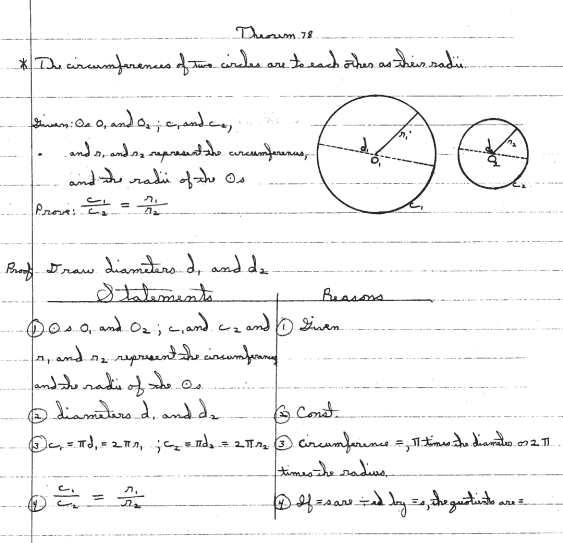 Theorem 78
* The circumferences of two circles are to each other as their radii.
Given: ⊙s O₁ and O₂; c₁ and c₂,
and r₁ and r₂ represent the circumferences,
and the radii of the ⊙s
Prove: c₁/c₂ = r₁/r₂
d₁ r₁ O₁ c₁
d₂ r₂ O₂ c₂
Proof Draw diameters d₁ and d₂
Statements Reasons
① ⊙s O₁ and O₂; c₁ and c₂ and ① Given
r₁ and r₂ represent the circumferences
and the radii of the ⊙s
② diameters d₁ and d₂ ② Const.
③ c₁ = πd₁ = 2πr₁ ; c₂ = πd₂ = 2πr₂ ③ Circumference =, π times the diameter or 2π
times the radius.
④ c₁/c₂ = r₁/r₂ ④ If =s are ÷ed by =s, the quotients are =